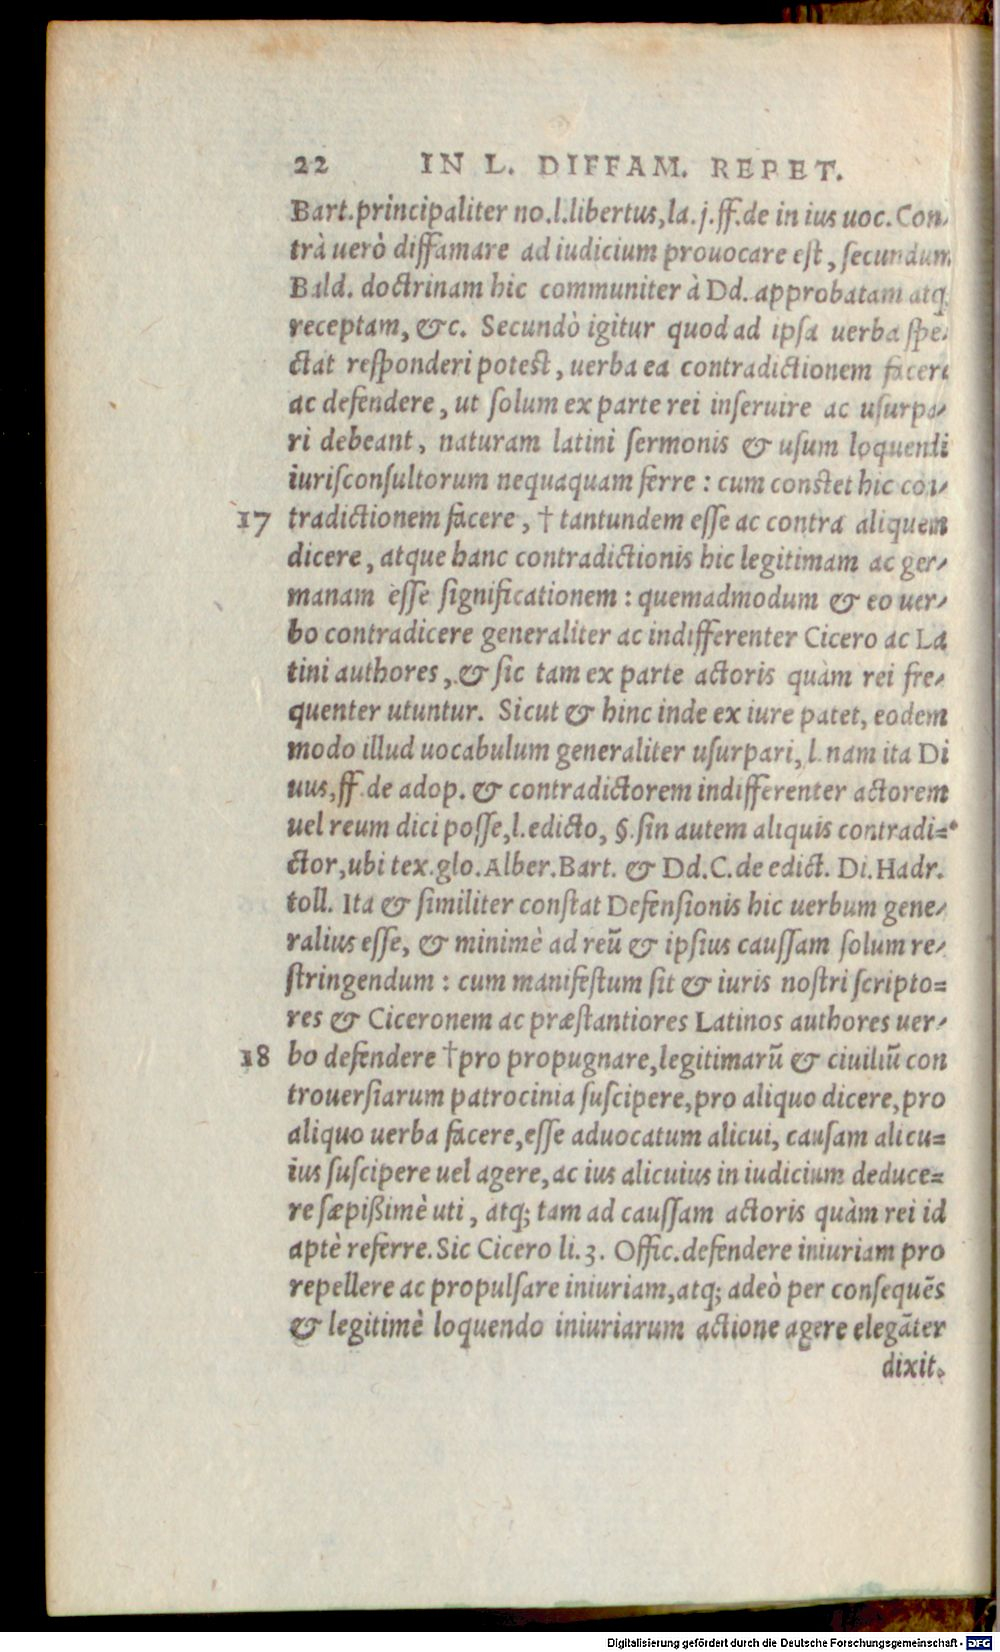 22 IN L. DIFFAM. REPET.
Bart.principaliter no.l.libertus,la.j.ff.de in ius uoc.Con-
trà uerò diffamare ad iudicium prouocare est, secundum
Bald. doctrinam hic communiter à Dd. approbatam atq;
receptam, &c. Secundò igitur quod ad ipsa uerba spe-
ctat responderi potest, uerba ea contradictionem facere
ac defendere, ut solum ex parte rei inseruire ac usurpa-
ri debeant, naturam latini sermonis & usum loquendi
iurisconsultorum nequaquam ferre : cum constet hic con-
17 tradictionem facere, † tantundem esse ac contra aliquem
dicere, atque hanc contradictionis hic legitimam ac ger-
manam esse significationem : quemadmodum & eo uer-
bo contradicere generaliter ac indifferenter Cicero ac La
tini authores, & sic tam ex parte actoris quàm rei fre-
quenter utuntur. Sicut & hinc inde ex iure patet, eodem
modo illud uocabulum generaliter usurpari, l. nam ita Di
uus,ff de adop. & contradictorem indifferenter actorem
uel reum dici posse,l.edicto, §.sin autem aliquis contradi=
ctor,ubi tex.glo.Alber.Bart. & Dd.C.de edict. Di.Hadr.
toll. Ita & similiter constat Defensionis hic uerbum gene-
ralius esse, & minimè ad reũ & ipsius caussam solum re-
stringendum : cum manifestum sit & iuris nostri scripto=
res & Ciceronem ac præstantiores Latinos authores uer-
18 bo defendere † pro propugnare,legitimarũ & ciuiliũ con
trouersiarum patrocinia suscipere,pro aliquo dicere,pro
aliquo uerba facere,esse aduocatum alicui, causam alicu=
ius suscipere uel agere,ac ius alicuius in iudicium deduce=
re sæpißimè uti, atq; tam ad caussam actoris quàm rei id
aptè referre.Sic Cicero li.3. Offic.defendere iniuriam pro
repellere ac propulsare iniuriam,atq; adeò per consequẽs
& legitimè loquendo iniuriarum actione agere elegãter
dixit.
Digitalisierung gefördert durch die Deutsche Forschungsgemeinschaft - DFG